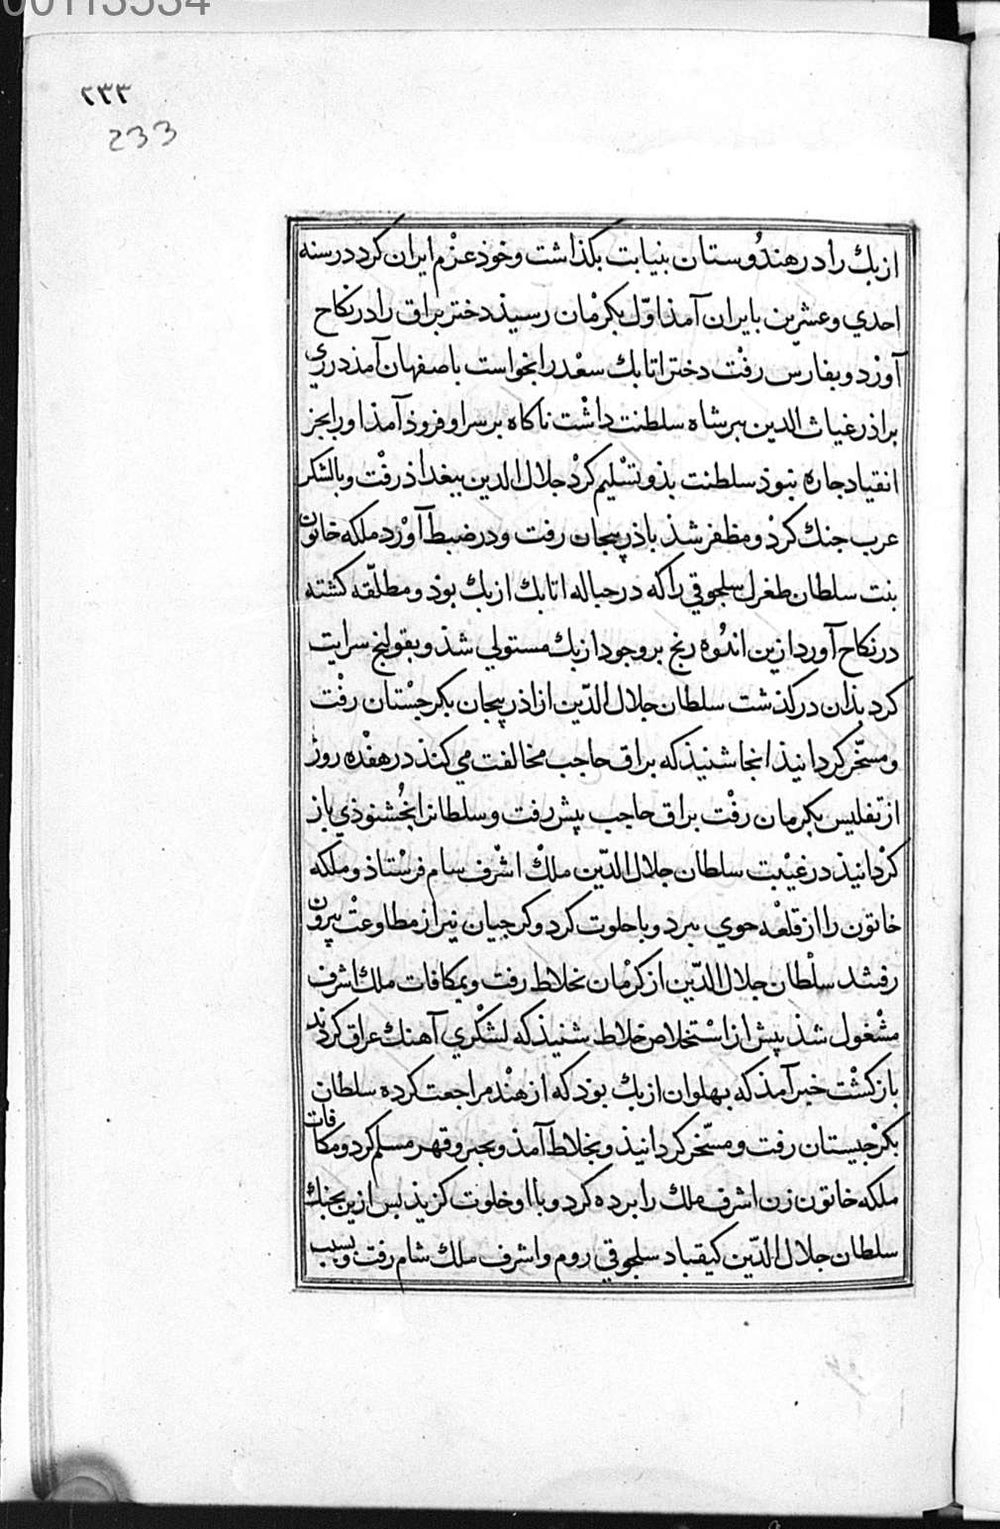 00113534
۲۳۳
233
ازبك را در هندُوستان بنیابت بكذاشت وخوذ عزْم ایران كرد در سنه
احدي وعشرین بایران آمذ اوّل بكرْمان رسیذ دختر براق را در نكاح
آورْد وبفارس رفْت دختر اتابك سعْد را بخواست باصفهان آمذ در ري
براذر غیاث الدین بیرشاه سلطنت داشْت ناكاه بر سر او فروذ آمذ او را بجز
انقیاد جاره نبوذ سلطنت بذو تسْلیم كرْد جلال الدین ببغداذ رفْت وبا لشكر
عرب جنك كردْ ومظفر شذ باذربیجان رفت ودر ضبط آورْد ملكه خاتون
بنت سلطان طغرل سلجوقي را كه در حباله اتابك ازبك بوذ ومطلّقه كشته
در نكاح آورد ازین اندُوه رنج بر وجود ازبك مستولي شذ وبقولنج سرایت
كرد بذان دركذشت سلطان جلال الدّین از اذربیجان بكرجسْتان رفْت
ومسخّر كردانیذ انجا شنیذ كه براق حاجب مخالفت مي كند در هفْده روز
از تفلیس بكرمان رفْت براق حاجب پیش رفت وسلطانرا بخُشنوذي باز
كرْدانیذ در غیْبت سلطان جلال الدّین ملكْ اشْرف بشام فرسْتاذ وملكه
خاتون را از قلعْه خوي ببرد وبا خلوت كرد وكرجیان نیز از مطاوعتْ بیرون
رفتند سلْطان جلال الدّین از كرْمان بخلاط رفت وبمكافات ملك اشرف
مشْغول شذ پیش از اسْتخلاص خلاط شنیذ كه لشكْري آهنك عراق كردند
بازكشْت خبر آمذ كه بهلوان ازبك بوذ كه از هنْد مراجعت كرده سلطان
بكرْجیستان رفت ومسّخر كردانیذ وبخلاط آمذ وبجبر وقهر مسلم كرد ومكافات
ملكه خاتون زن اشرف ملك را برده كرد وبا او خلوت كزیذ بس ازین بجنك
سلطان جلال الدّین كیقباد سلجوقي روم واشرف ملك شام رفت وبسبب